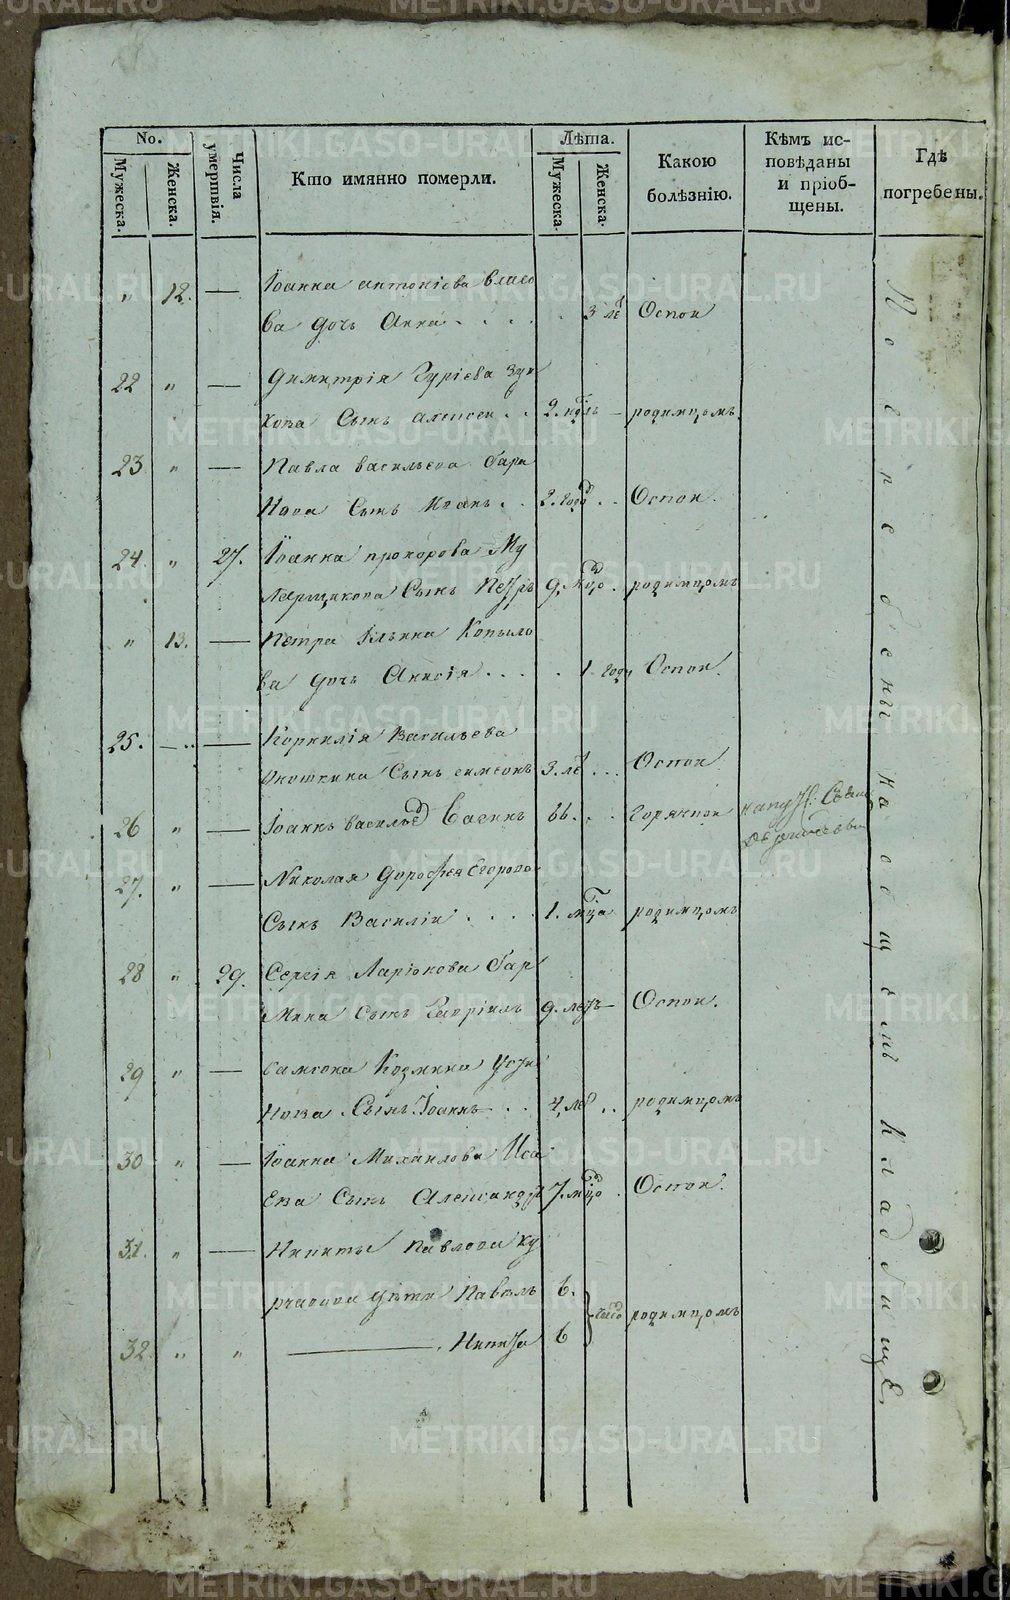 No.
Мужеска.
Женска.
Числа умертвія.
Кто имянно померли.
Лѣта.
Мужеска.
Женска.
Какою
болѣзнію.
Кѣмъ ис-
повѣданы
и пріоб-
щены.
Гдѣ
погребены.
„ 12. — Іоанна антоніева власо
ва дочь Анна . . . . 3 лѣ Оспои
22 „ — Димитрія Гуріева
хова Сынъ алексеи . . 2. ндль — родимцомъ
23 „ — Павла васильева бара
нова Сынъ Иоанъ . . 2. годо . . Оспои.
24. „ 27. Іоанна прохорова Му
Сынъ Петръ 9. мцо . родимцомъ
„ 13. — Петра Ильина Копыло
ва дочь Анисія . . . . 1. году Оспои.
25. — „ — Корнилія Васильева
Окошкина Сынъ симеонъ 3. лѣ . . . Оспои
26 „ — Іоаннъ васильев 66. . . Горячкои
27. „ — Николая Дорофея Егорова
Сынъ Василіи . . . . 1. мца родимцомъ
28 „ 29. Сергія Ларіонова бар
мина Сынъ Гавріилъ 9. летъ — Оспои.
29 „ — самсона Козмина Усти
нова Сынъ Іоаннъ . . 4. ле . . родимцомъ
30 „ — Іоанна Михаилова Иса
ева Сынъ Александръ 7. мцо . Оспои.
31. „ — Никиты павлова ку
дѣти Павелъ 6.
часо родимцомъ
32. „ „ — . Никита 6
Погребены на общемъ кладбищѣ
METRIKI.GASO-URAL.RU